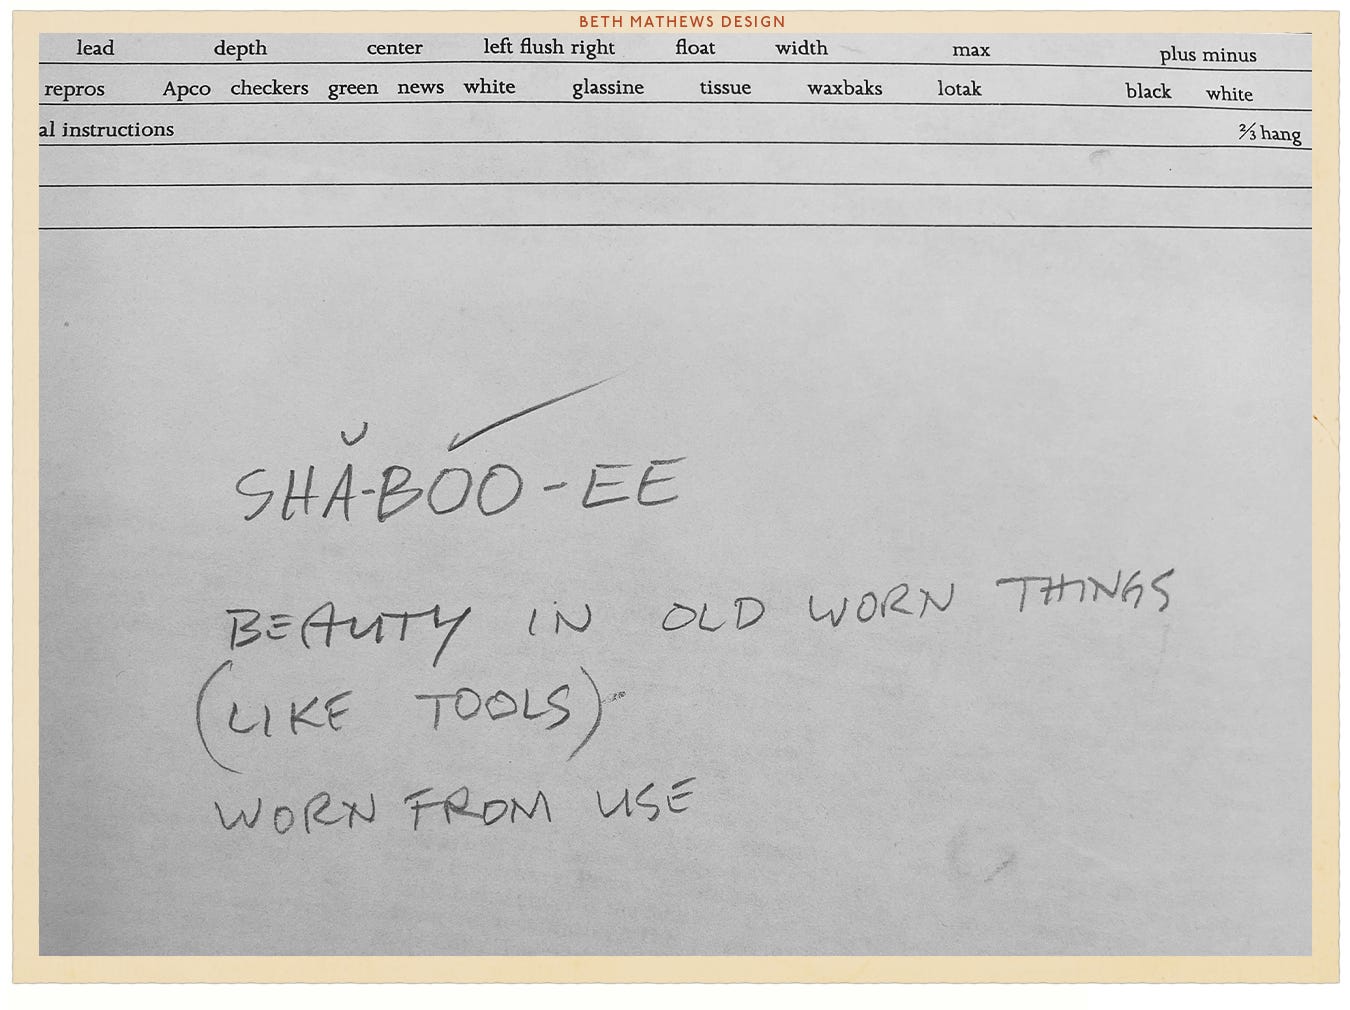 BETH MATHEWS DESIGN
lead depth center left flush right float width max plus minus
repros Apco checkers green news white glassine tissue waxbaks lotak black white
al instructions ⅔ hang
SHĂ-BÓO-EE
BEAUTY IN OLD WORN THINGS
(LIKE TOOLS)
WORN FROM USE